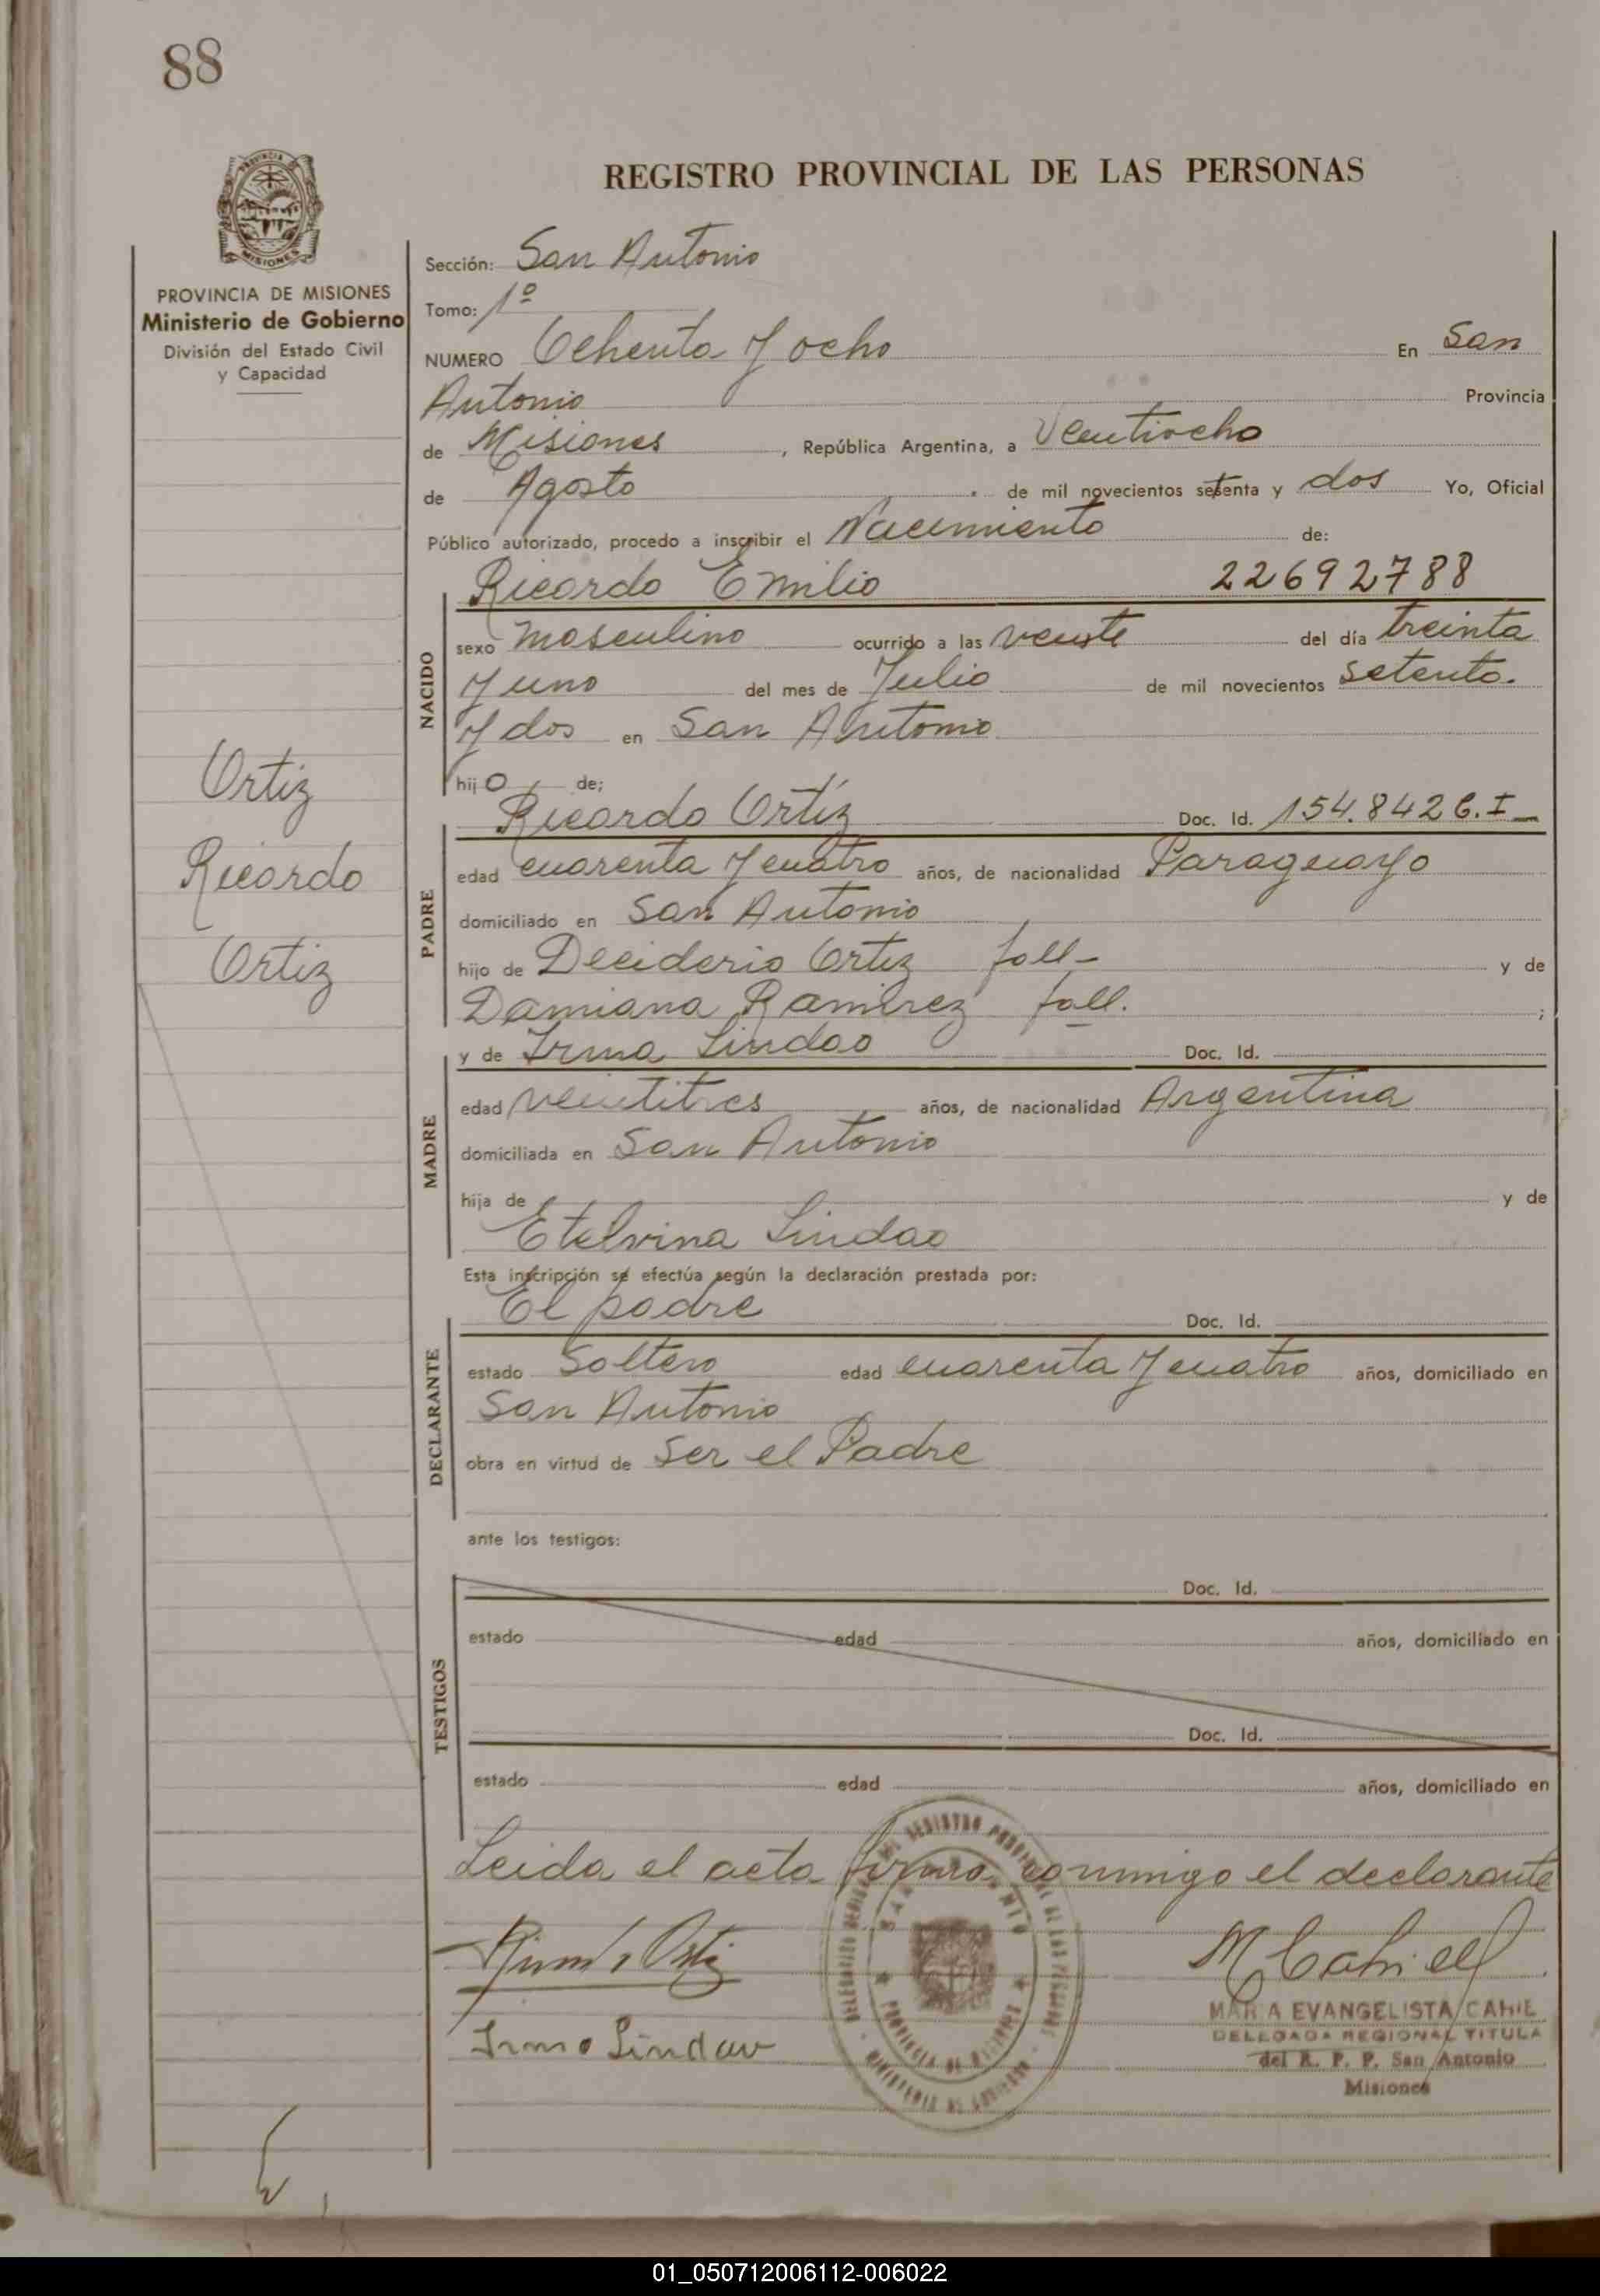 88
PROVINCIA DE MISIONES
Ministerio de Gobierno
División del Estado Civil
y Capacidad
Ortiz
Ricardo
Ortiz
REGISTRO PROVINCIAL DE LAS PERSONAS
Sección: San Antonio
Tomo: 1º
NUMERO Ochenta y ocho En San
Antonio Provincia
de Misiones, República Argentina, a Veintiocho
de Agosto de mil novecientos setenta y dos Yo, Oficial
Público autorizado, procedo a inscribir el Nacimiento de:
Ricardo Emilio 22692788
NACIDO
sexo masculino ocurrido a las veinte del día treinta
y uno del mes de Julio de mil novecientos setenta.
y dos en San Antonio
hijo de;
Ricardo Ortíz Doc. Id. 154.842 C.I
PADRE
edad cuarenta y cuatro años, de nacionalidad Paraguayo
domiciliado en San Antonio
hijo de Deciderio Ortiz fall- y de
Damiana Ramirez fall. ;
y de Irma Lindao Doc. Id.
MADRE
edad veintitres años, de nacionalidad Argentina
domiciliada en San Antonio
hija de y de
Etelvina Lindao
Esta inscripción se efectúa según la declaración prestada por:
El padre Doc. Id.
DECLARANTE
estado Soltero edad cuarenta y cuatro años, domiciliado en
San Antonio
obra en virtud de Ser el Padre
ante los testigos:
Doc. Id.
TESTIGOS
estado edad años, domiciliado en
Doc. Id.
estado edad años, domiciliado en
Leida el acta firma conmigo el declarante
Ortiz
M Cahiell
MARIA EVANGELISTA CAHIE
DELEGADA REGIONAL TITULA
del R. P. P. San Antonio
Misiones
Irma Lindau
PROVINCIA DE MISIONES
MINISTERIO DE GOBIERNO
01_050712006112-006022